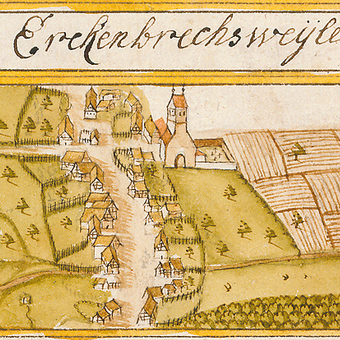 Erckenbrechsweÿle